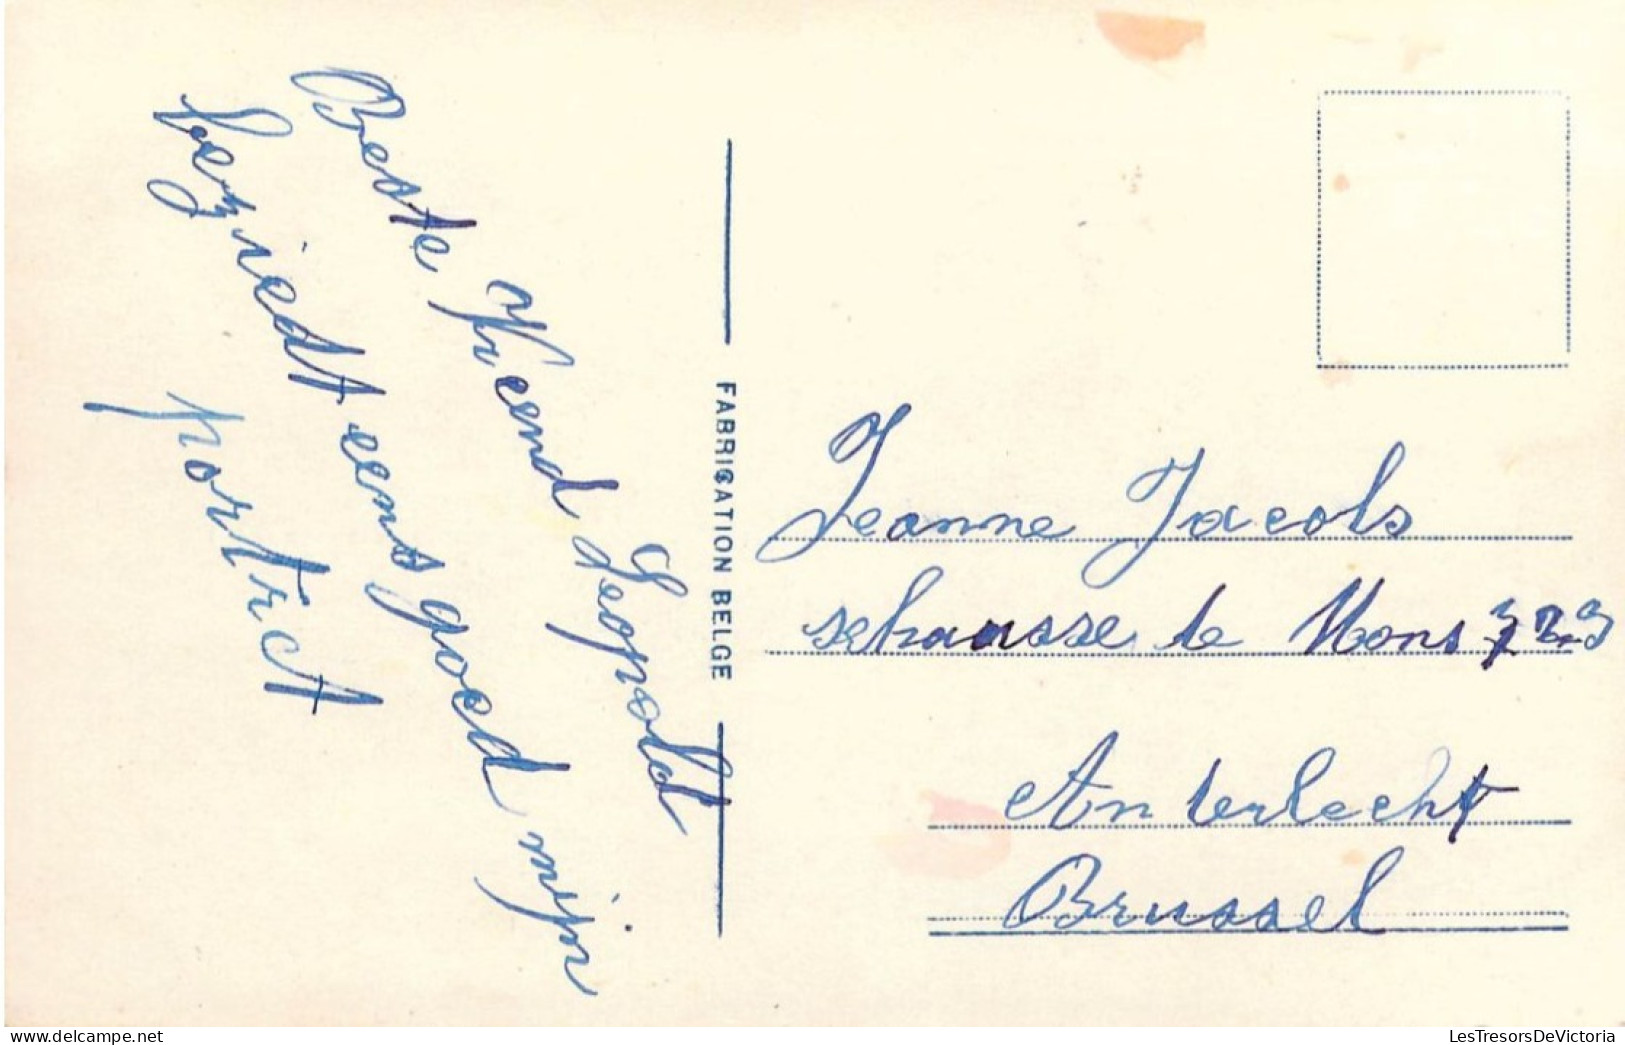 Beste Vriend Leopold
beziedt eens goed mijn
portrct
FABRICATION BELGE
Jeanne Jacobs
schausse de Mons 323
Anderlecht
Brussel
delcampe.net
LesTresorsDeVictoria